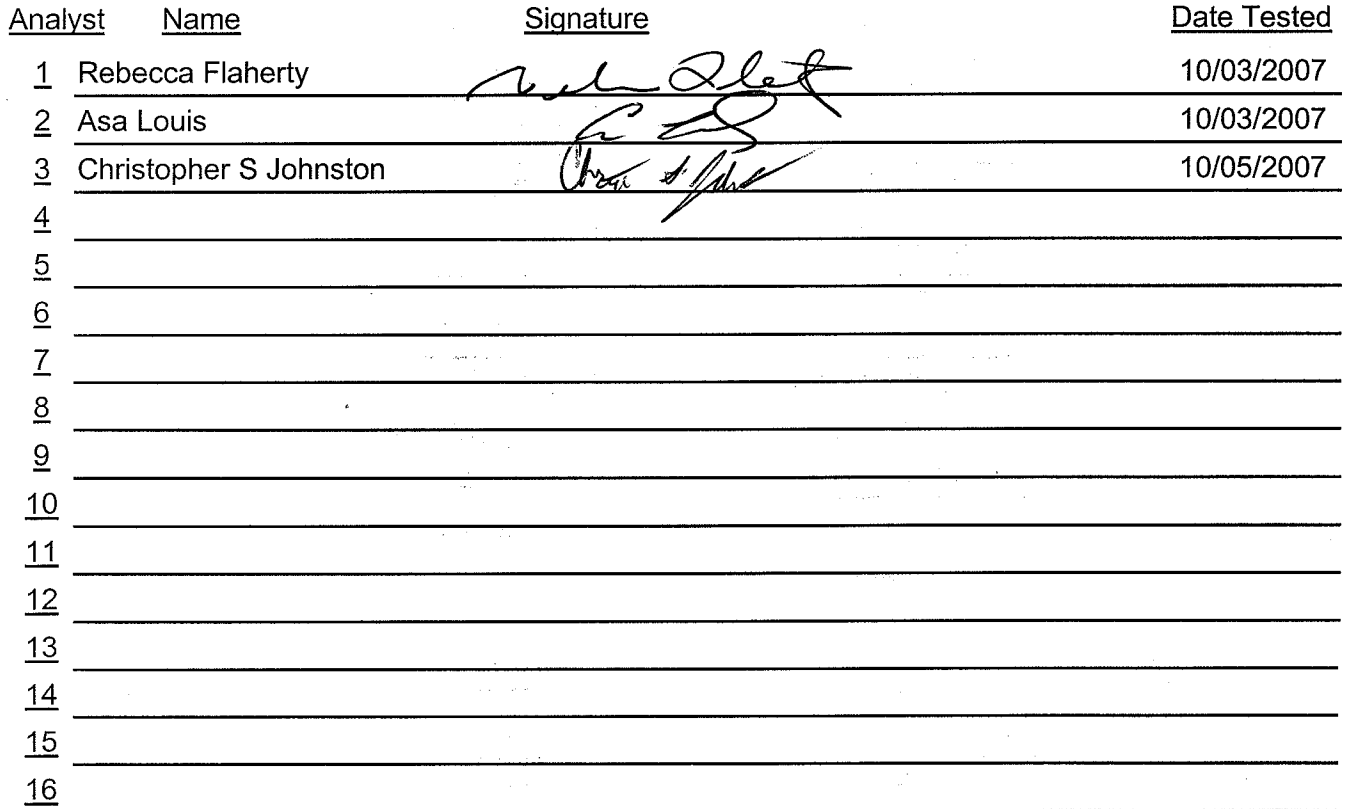 Analyst Name Signature Date Tested
1 Rebecca Flaherty 10/03/2007
2 Asa Louis 10/03/2007
3 Christopher S Johnston 10/05/2007
4
5
6
7
8
9
10
11
12
13
14
15
16